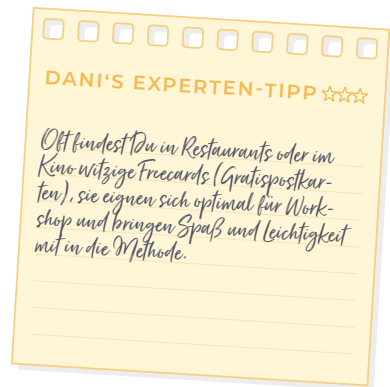 DANI'S EXPERTEN-TIPP
Oft findest Du in Restaurants oder im
Kino witzige Freecards (Gratispostkar-
ten), sie eignen sich optimal für Work-
shop und bringen Spaß und Leichtigkeit
mit in die Methode.